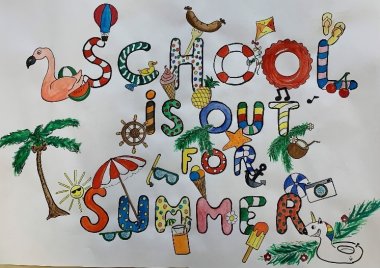 SCHOOL
IS OUT
FOR
SUMMER